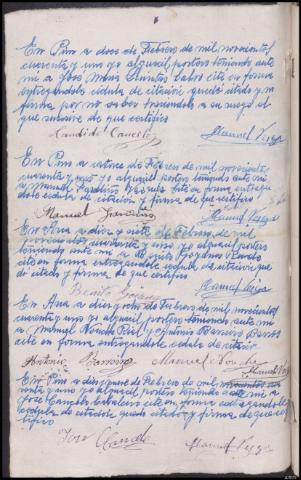 En Pino a doce de Febrero de mil novecientos
cuarenta y uno yo alguacil portero teniendo ante
mi a Jose Maria cabo cite en forma
entregandole cédula de citación quedó citado y no
firma por no saber haciendolo a su ruego el
que subscribe de que certifico
Candido Canceló Manuel Veiga
En Pino a catorce de Febrero de mil novecientos
cuarenta y uno yo alguacil portero teniendo ante mi
a Manuel cité en forma entregan
dole cedula de citación y firma de que certifico
Manuel Manuel Veiga
En Ana a diez y siete de Febrero de mil
novecientos cuarenta y uno yo alguacil portero
teniendo ante mi a Benito
cite en forma entregandole cedula de citación que
dó citado y firma de que certifico
Benito Manuel Veiga
En Ana a diez y ocho de Febrero de mil novecientos
cuarenta y uno yo alguacil portero teniendo ante mi
a Manuel y Antonio Barreiro
cite en forma entregandole cedula de citación
Antonio Barreiro Manuel Manuel Veiga
En Pino a diez y nueve de Febrero de mil novecientos
cuarenta y uno yo alguacil portero teniendo ante mi a
Jose Cancelo cite en forma entregandole
cedula de citación quedó citado y firma de que cer
tifico
Jose Cancelo Manuel Veiga